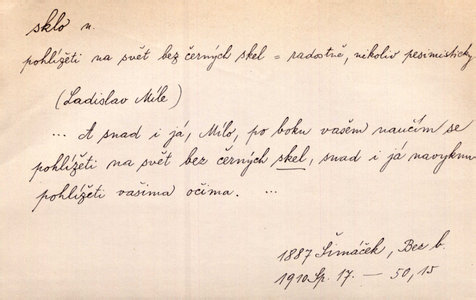 sklo n.
pohlížeti na svět bez černých skel = radostně, nikoliv pesimisticky
(Ladislav Míle)
... A snad i já, Mílo, po boku vašem naučím se
pohlížeti na svět bez černých skel, snad i já navyknu
pohlížeti vašima očima. ...
1887 Šimáček, Bez b.
1910 Sp. 17. — 50, 15